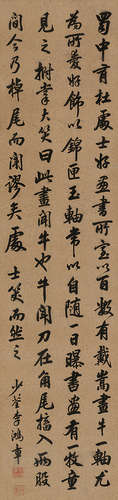 蜀中有杜處士好畫書所寶以百數有戴嵩畫牛一軸尤
為所愛好飾以錦匣玉軸常以自隨一日曝書畫有牧童
見之拊掌大笑曰此畫鬪牛也牛鬪力在角尾搐入兩股
間今乃掉尾而鬪謬矣處士笑而然之
少荃李鴻章